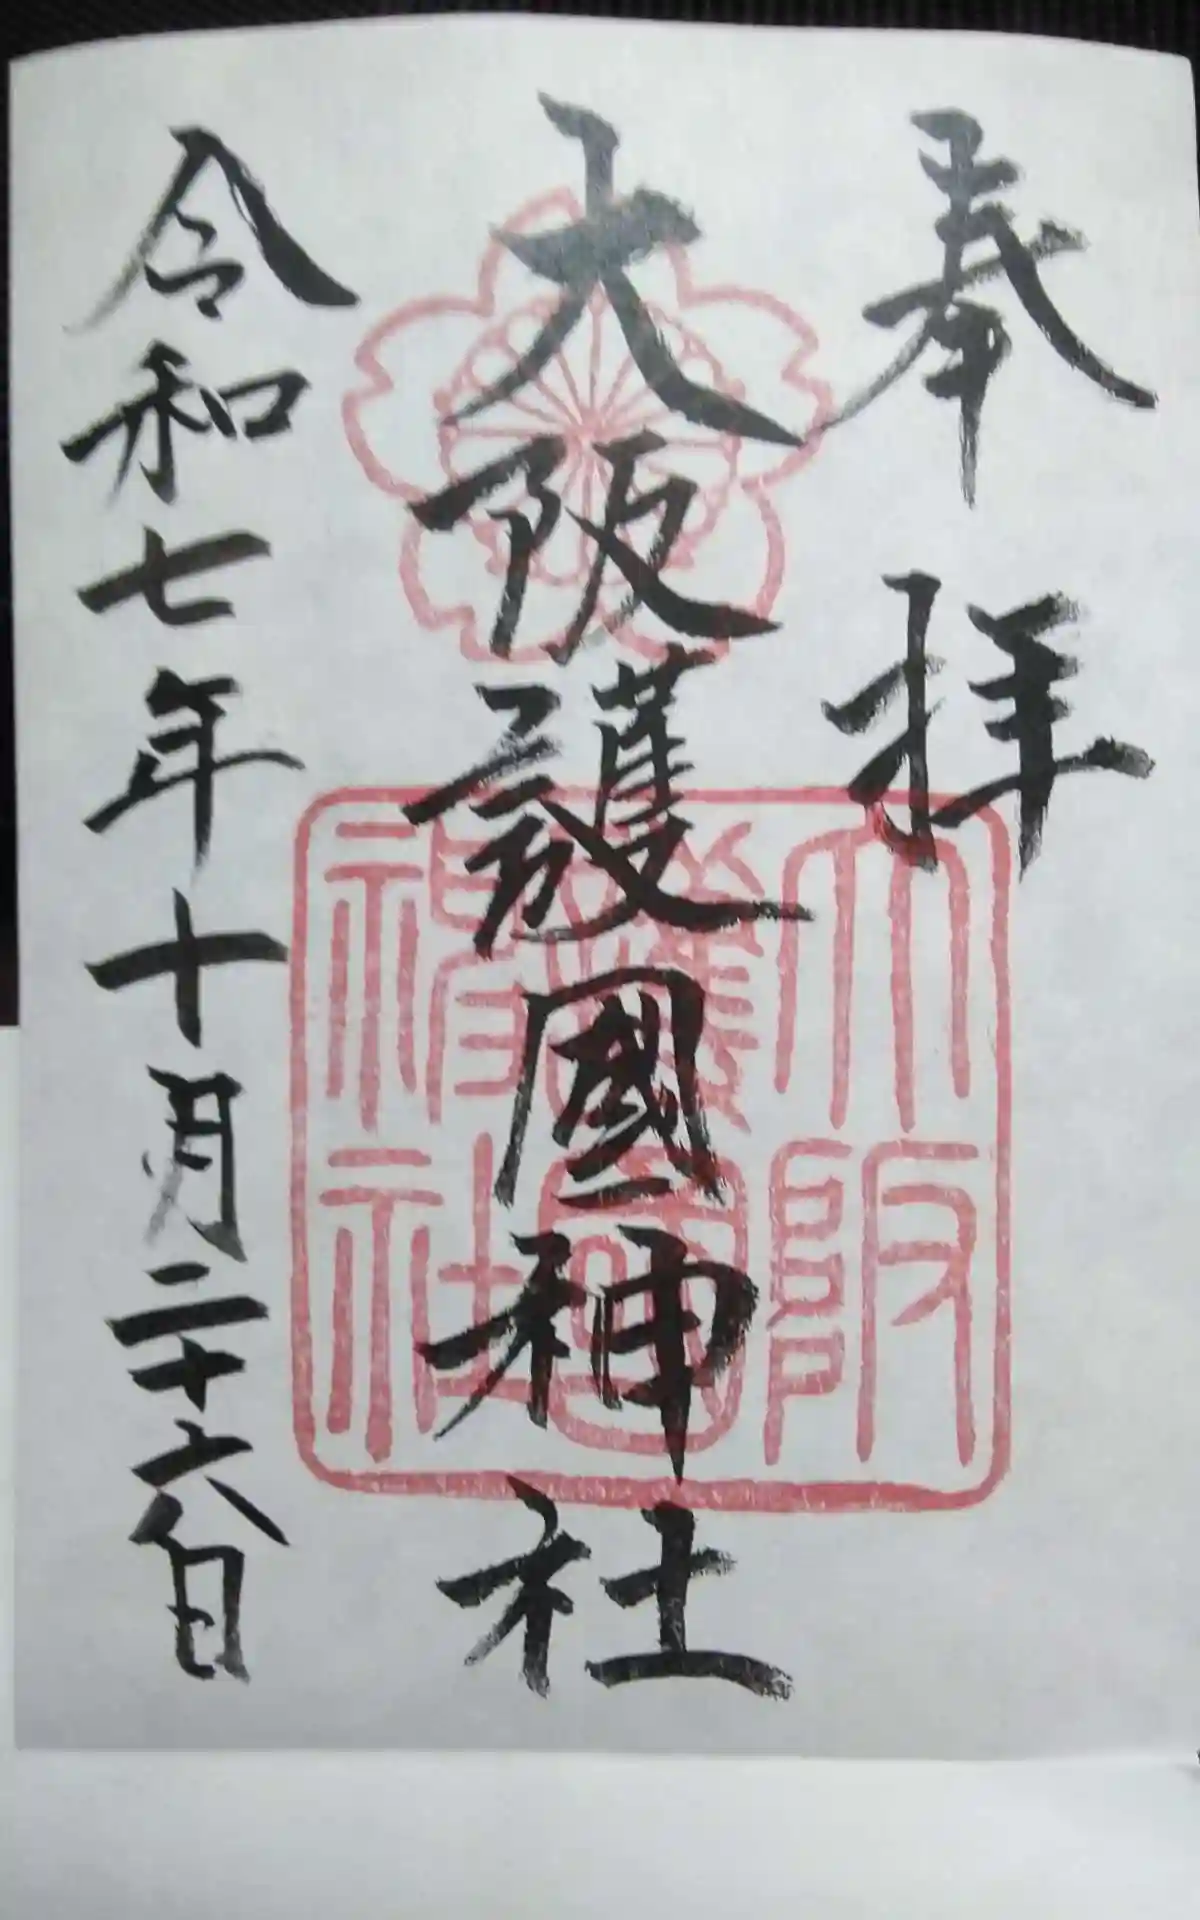 奉拝
大阪護國神社
大阪護國神社
令和七年十月二十六日